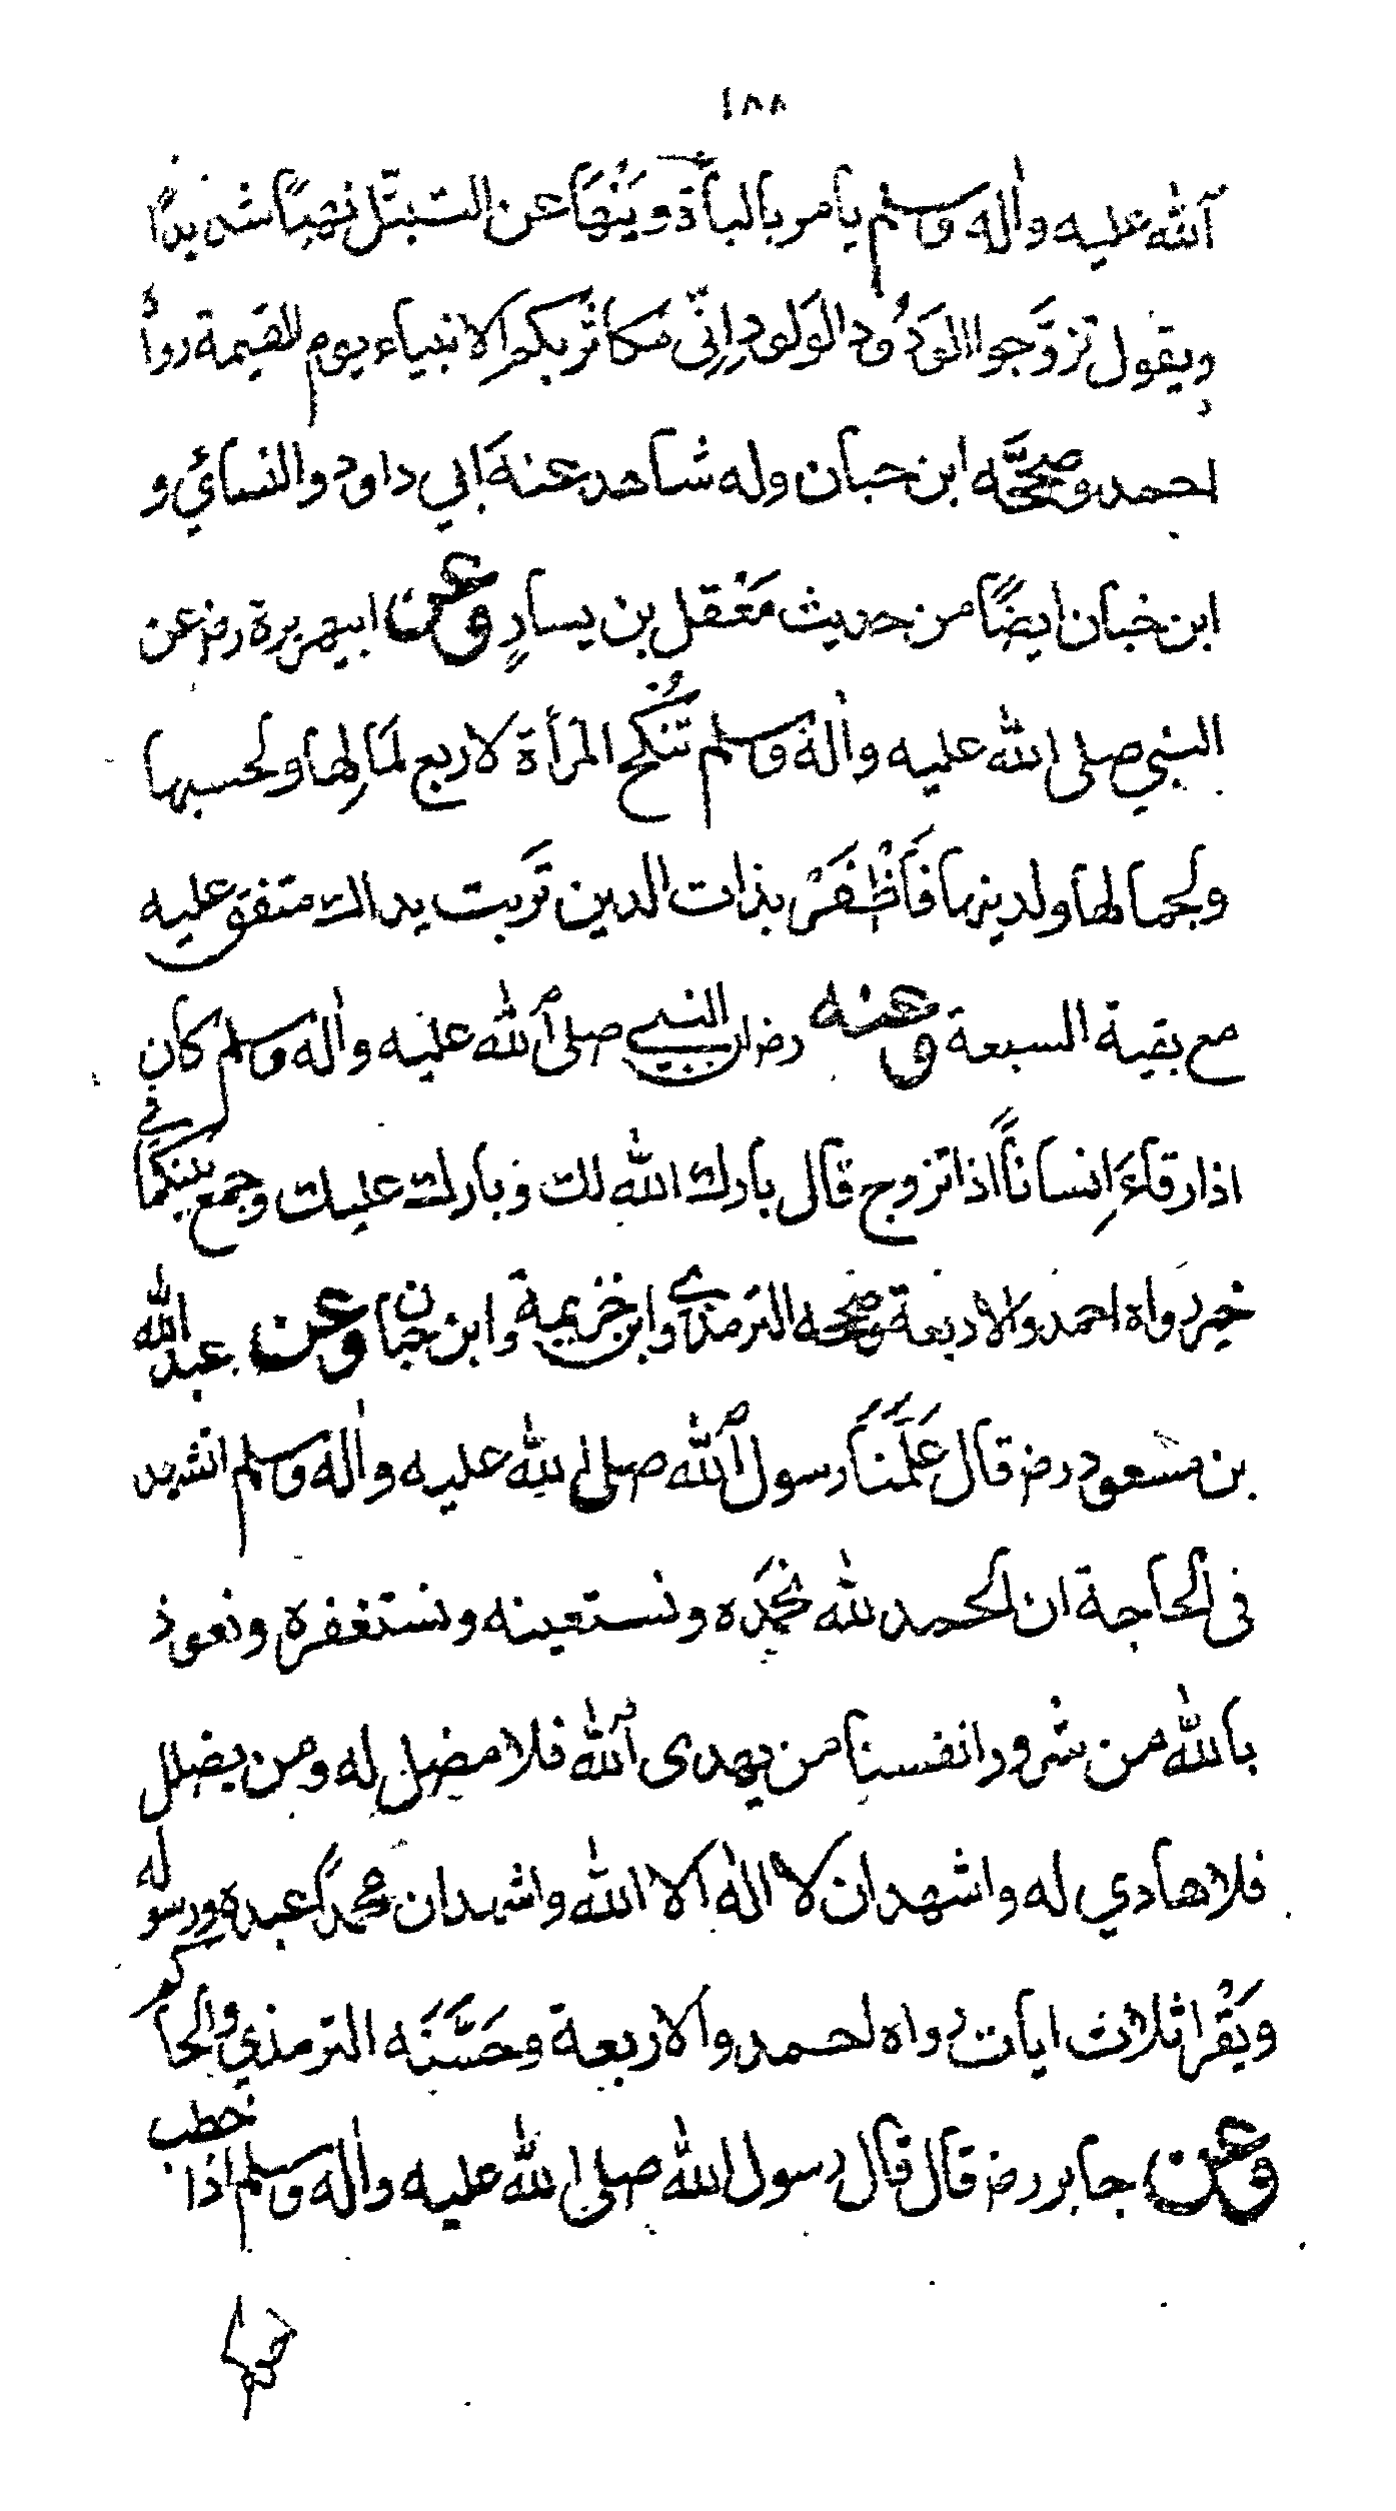 ١٨٨
الله عليه واٰله وسلم يامر بالبأة ويَنْهَا عن التبتّل نهيًا شديدًا
ويقول تزوَّجوا الوَدُود الوَلود اِنّى مكاثرٌ بكم الانبياء يوم القيمة رواه
احمد وصحَّحه ابن حبان وله شاهد عند ابي داود والنسائي و
ابن حبان ايضًا من حديث مَعْقل بن يسارٍ وعن ابيهريرة رض عن
النبي صلى الله عليه واٰله وسلم تُنكح المرأة لاربع لمَالِها ولحسبها
ولجمالها ولدينها فَاَظْفَرْ بذات الدين تَربت يداك متفق عليه
مع بقية السبعة وعنه رض ان النبي صلى الله عليه واٰله وسلم كان
اذا رفاءَ اِنسانًا اذا تزوج قال بارك الله لك وبارك عليك وجمع بينكما في
خير رواه احمد والاربعة وصححه الترمذي وابن خزيمة وابن حبان وعن عبد الله
بن مسعود رض قال عَلَّمَنَا رسول الله صلى الله عليه واٰله وسلم التشهد
فى الحاجة ان الحمد لله نحمَده ونستعينه ونستغفره ونعوذ
بالله من شرور انفسنا من يهدى الله فلا مضل له ومن يضلل
فلا هادي له واشهد ان لا اله الا الله واشهد ان محمدًا عبده ورسوله
ويَقْرا ثلاث ايات رواه احمد والاربعة وحَسَّنَه الترمذي والحاكم
وعن جابر رض قال قال رسول الله صلى الله عليه واٰله وسلم اذا خطب